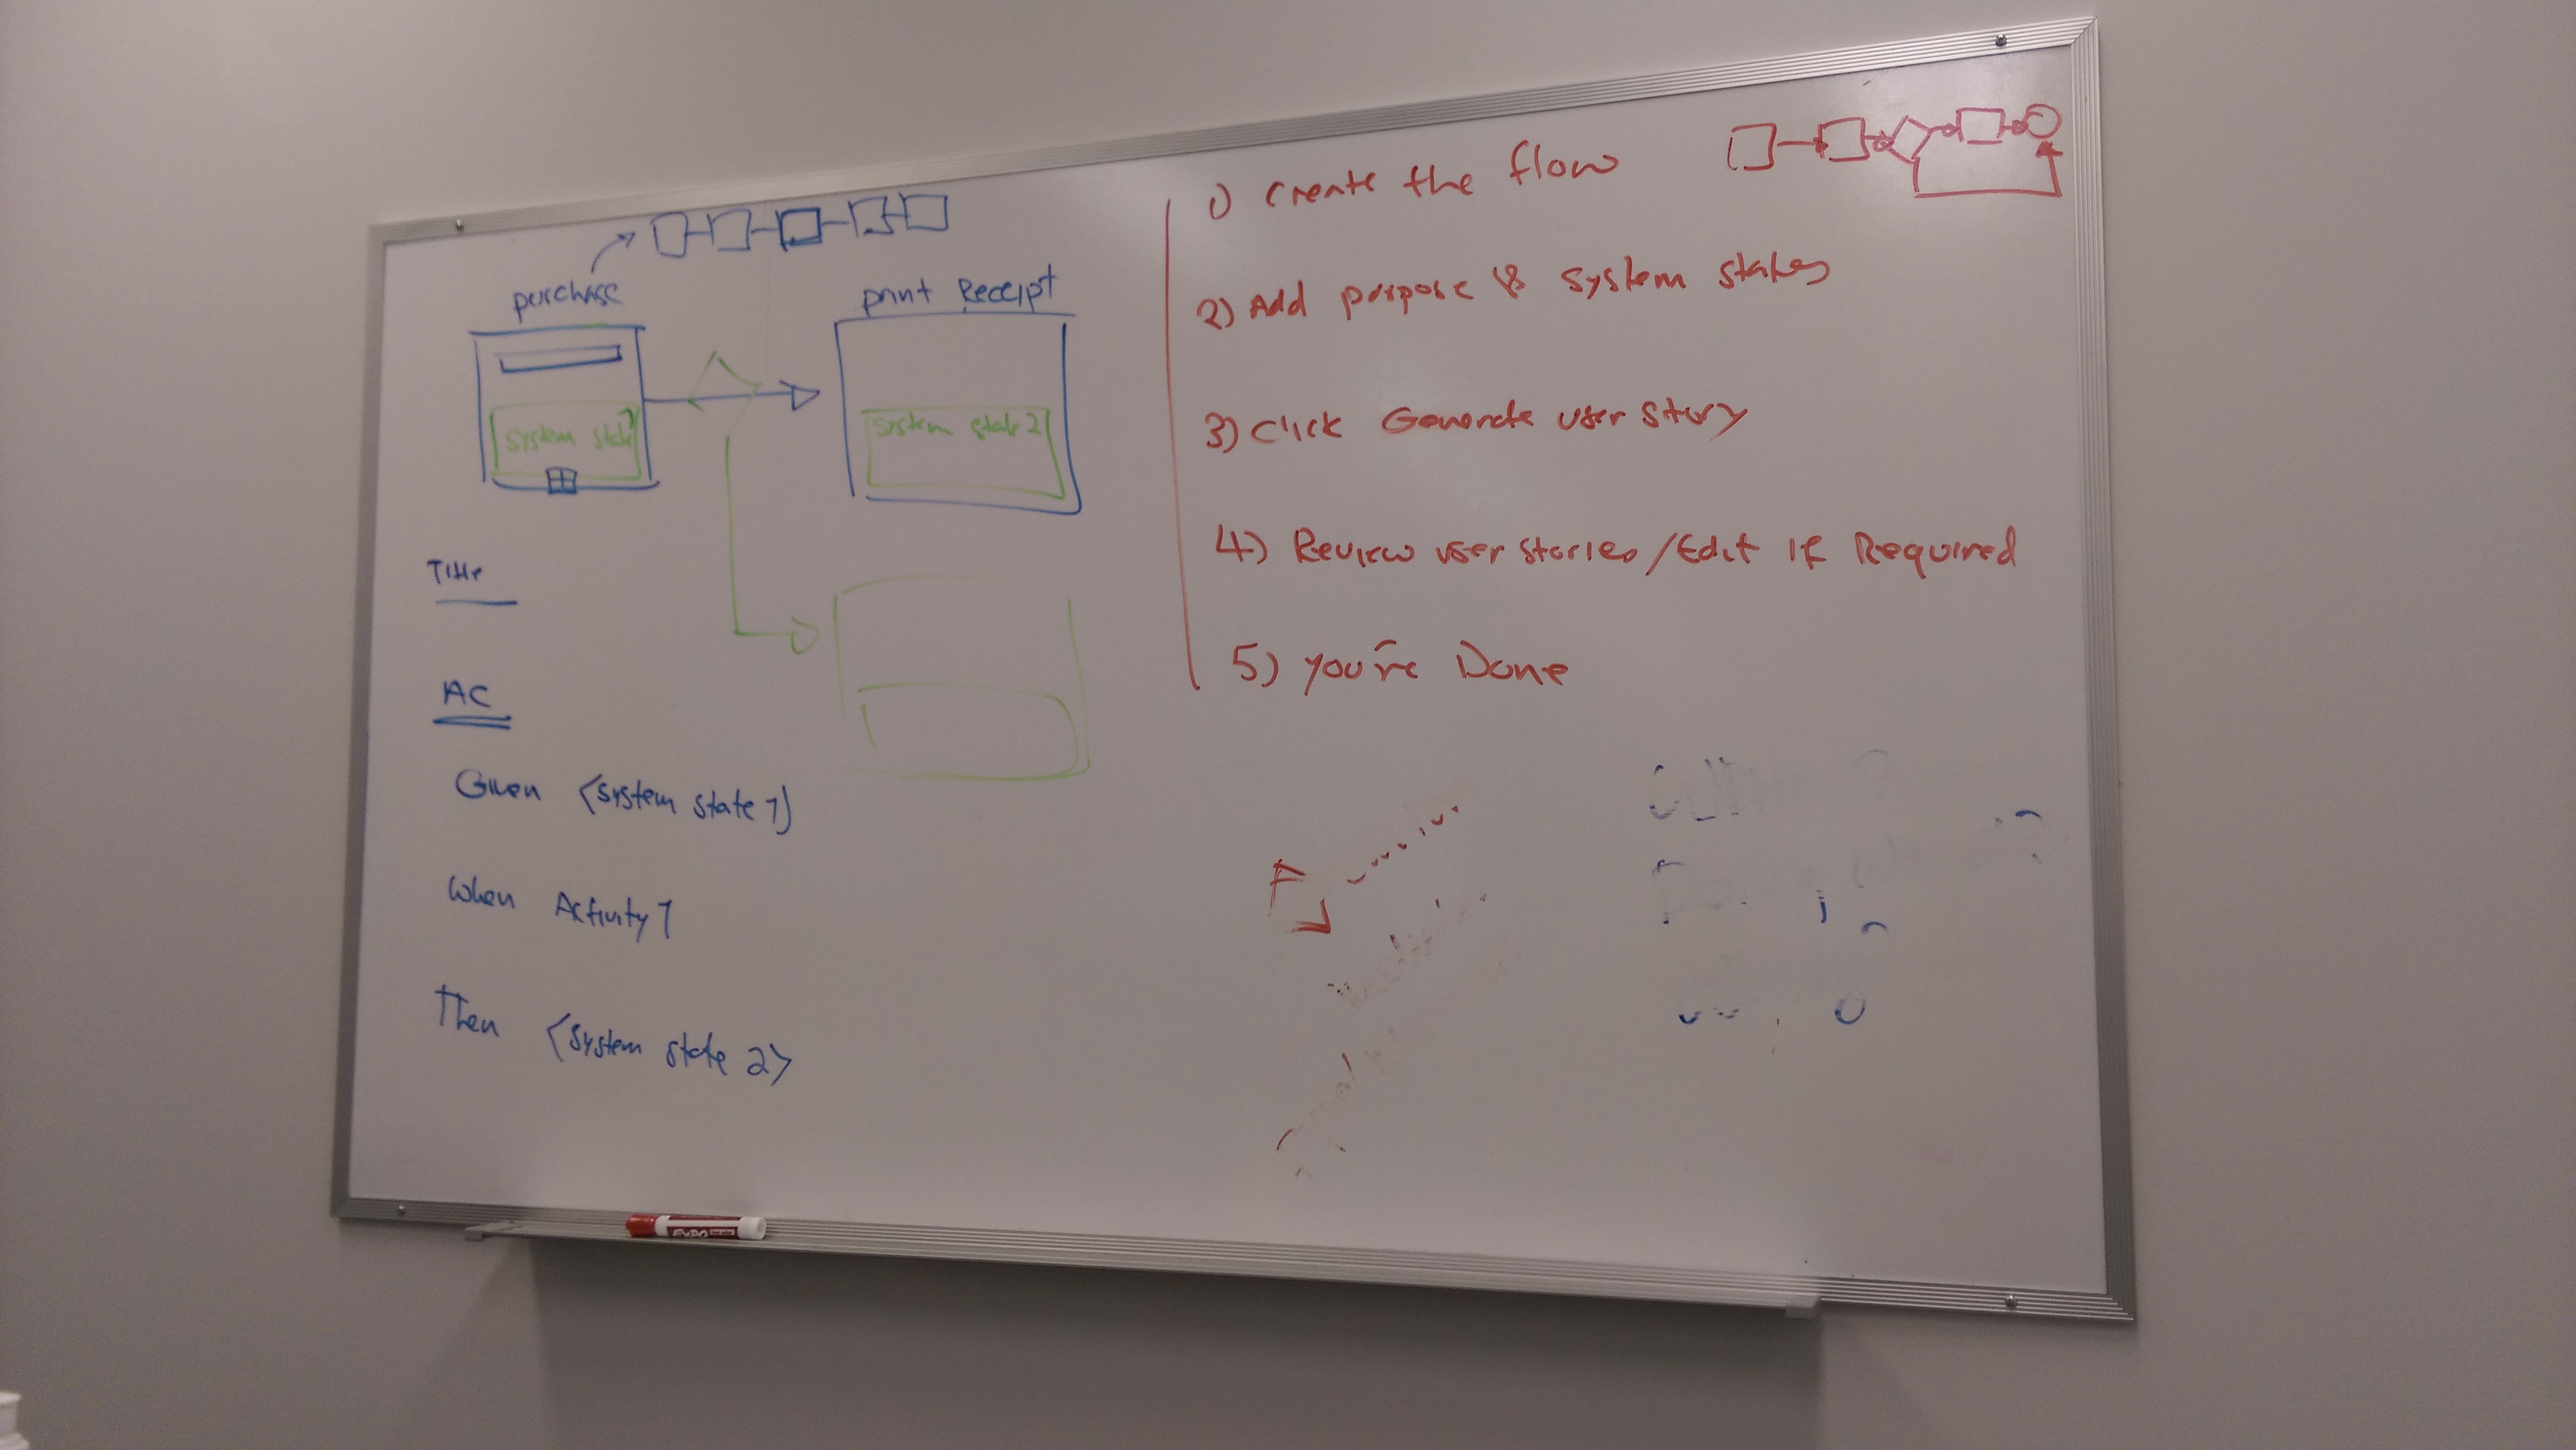 purchase
print Receipt
system state 1
system state 2
Title
AC
Given <system state 1>
When Activity 1
Then <system state 2>
1) Create the flow
2) Add purpose & system states
3) Click Generate user story
4) Review user stories / Edit if Required
5) you're Done
EXPO